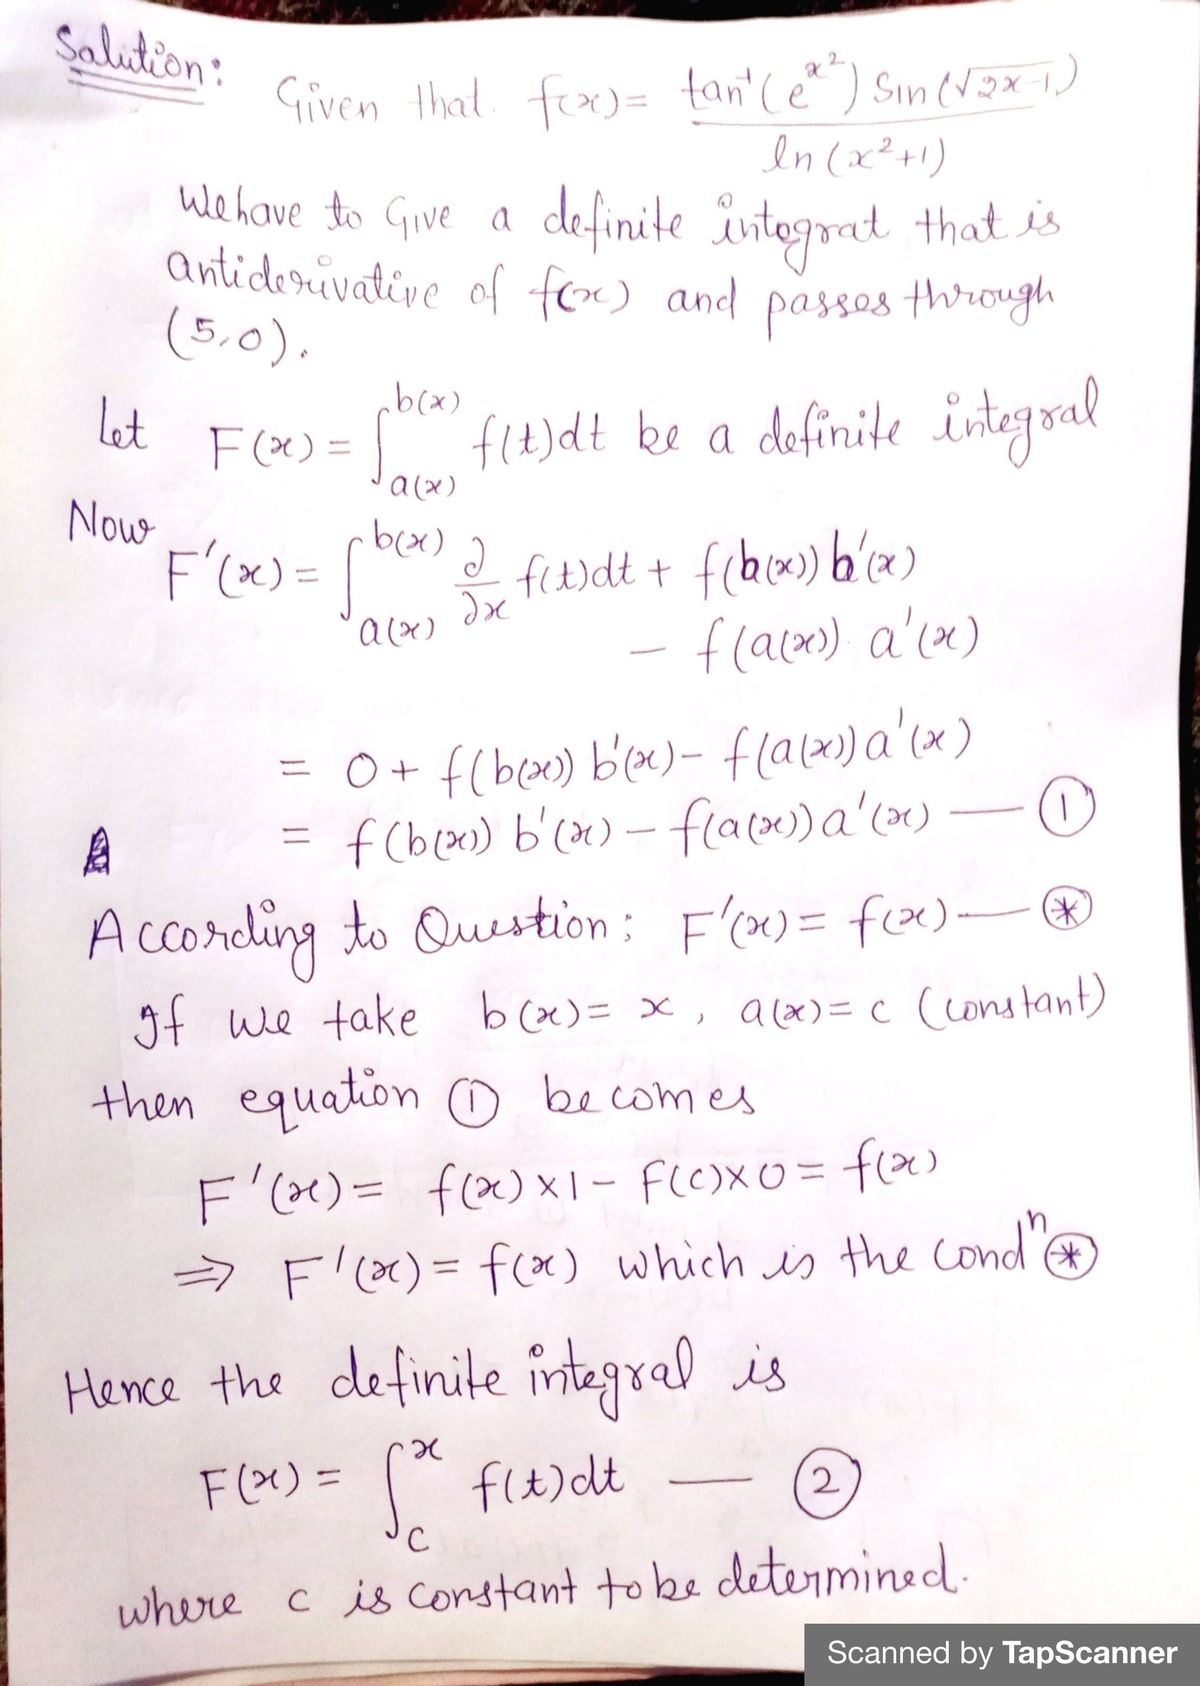 Solution:
Given that. f(x) = tan⁻¹(e^x²) Sin(√2x-1) / ln(x²+1)
We have to Give a definite integrat that is
antiderivative of f(x) and passes through
(5,0).
Let F(x) = ∫_{a(x)}^{b(x)} f(t)dt be a definite integral
Now
F'(x) = ∫_{a(x)}^{b(x)} ∂/∂x f(t)dt + f(b(x)) b'(x)
- f(a(x)) a'(x)
= 0 + f(b(x)) b'(x) - f(a(x)) a'(x)
= f(b(x)) b'(x) - f(a(x)) a'(x) — ①
According to Question: F'(x) = f(x) — ⊛
If we take b(x) = x, a(x) = c (constant)
then equation ① becomes
F'(x) = f(x) × 1 - F(c) × 0 = f(x)
⇒ F'(x) = f(x) which is the condⁿ ⊛
Hence the definite integral is
F(x) = ∫_c^x f(t)dt — ②
where c is constant to be determined.
Scanned by TapScanner